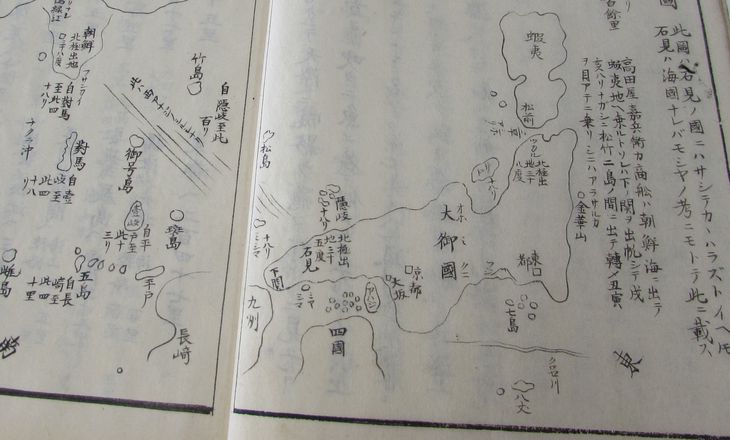 此圖ハ石見ノ國ニハサシテカヽハラズトイヘドモ
石見ハ海國ナレバモシヤノ考ニモトテ此ニ載ス
高田屋嘉兵衛カ商船ハ朝鮮海ニ出テ
蝦夷地ヘ乗ルトソレハ下ノ関ヲ出帆シテ戌
亥ハリナガシニ松竹二島ノ間ニ出テ轉シ丑寅
ヲ目アテニ乗リシニハアラサルカ
金華山
蝦夷
松前
北極出
地三十
八度
サド
十八リ
大御國
オホミクニ
東都
江口
七島
京都
大坂
アハジ
隠岐
十八リ
北極出
地三十
五度
石見
下関
四國
九列
松島
ミシマ
十八リ
クロ石川
八丈
東
竹島
自隠岐至此
百リ
朝鮮
北極出地
三十八度
自對馬
至此四
十八リ
對馬
自壹
岐至
此四
十八
御号島
壹岐
自平
戸至
此十
三リ
斑島
五島
自長
崎至
此四
十里
平戸
長崎